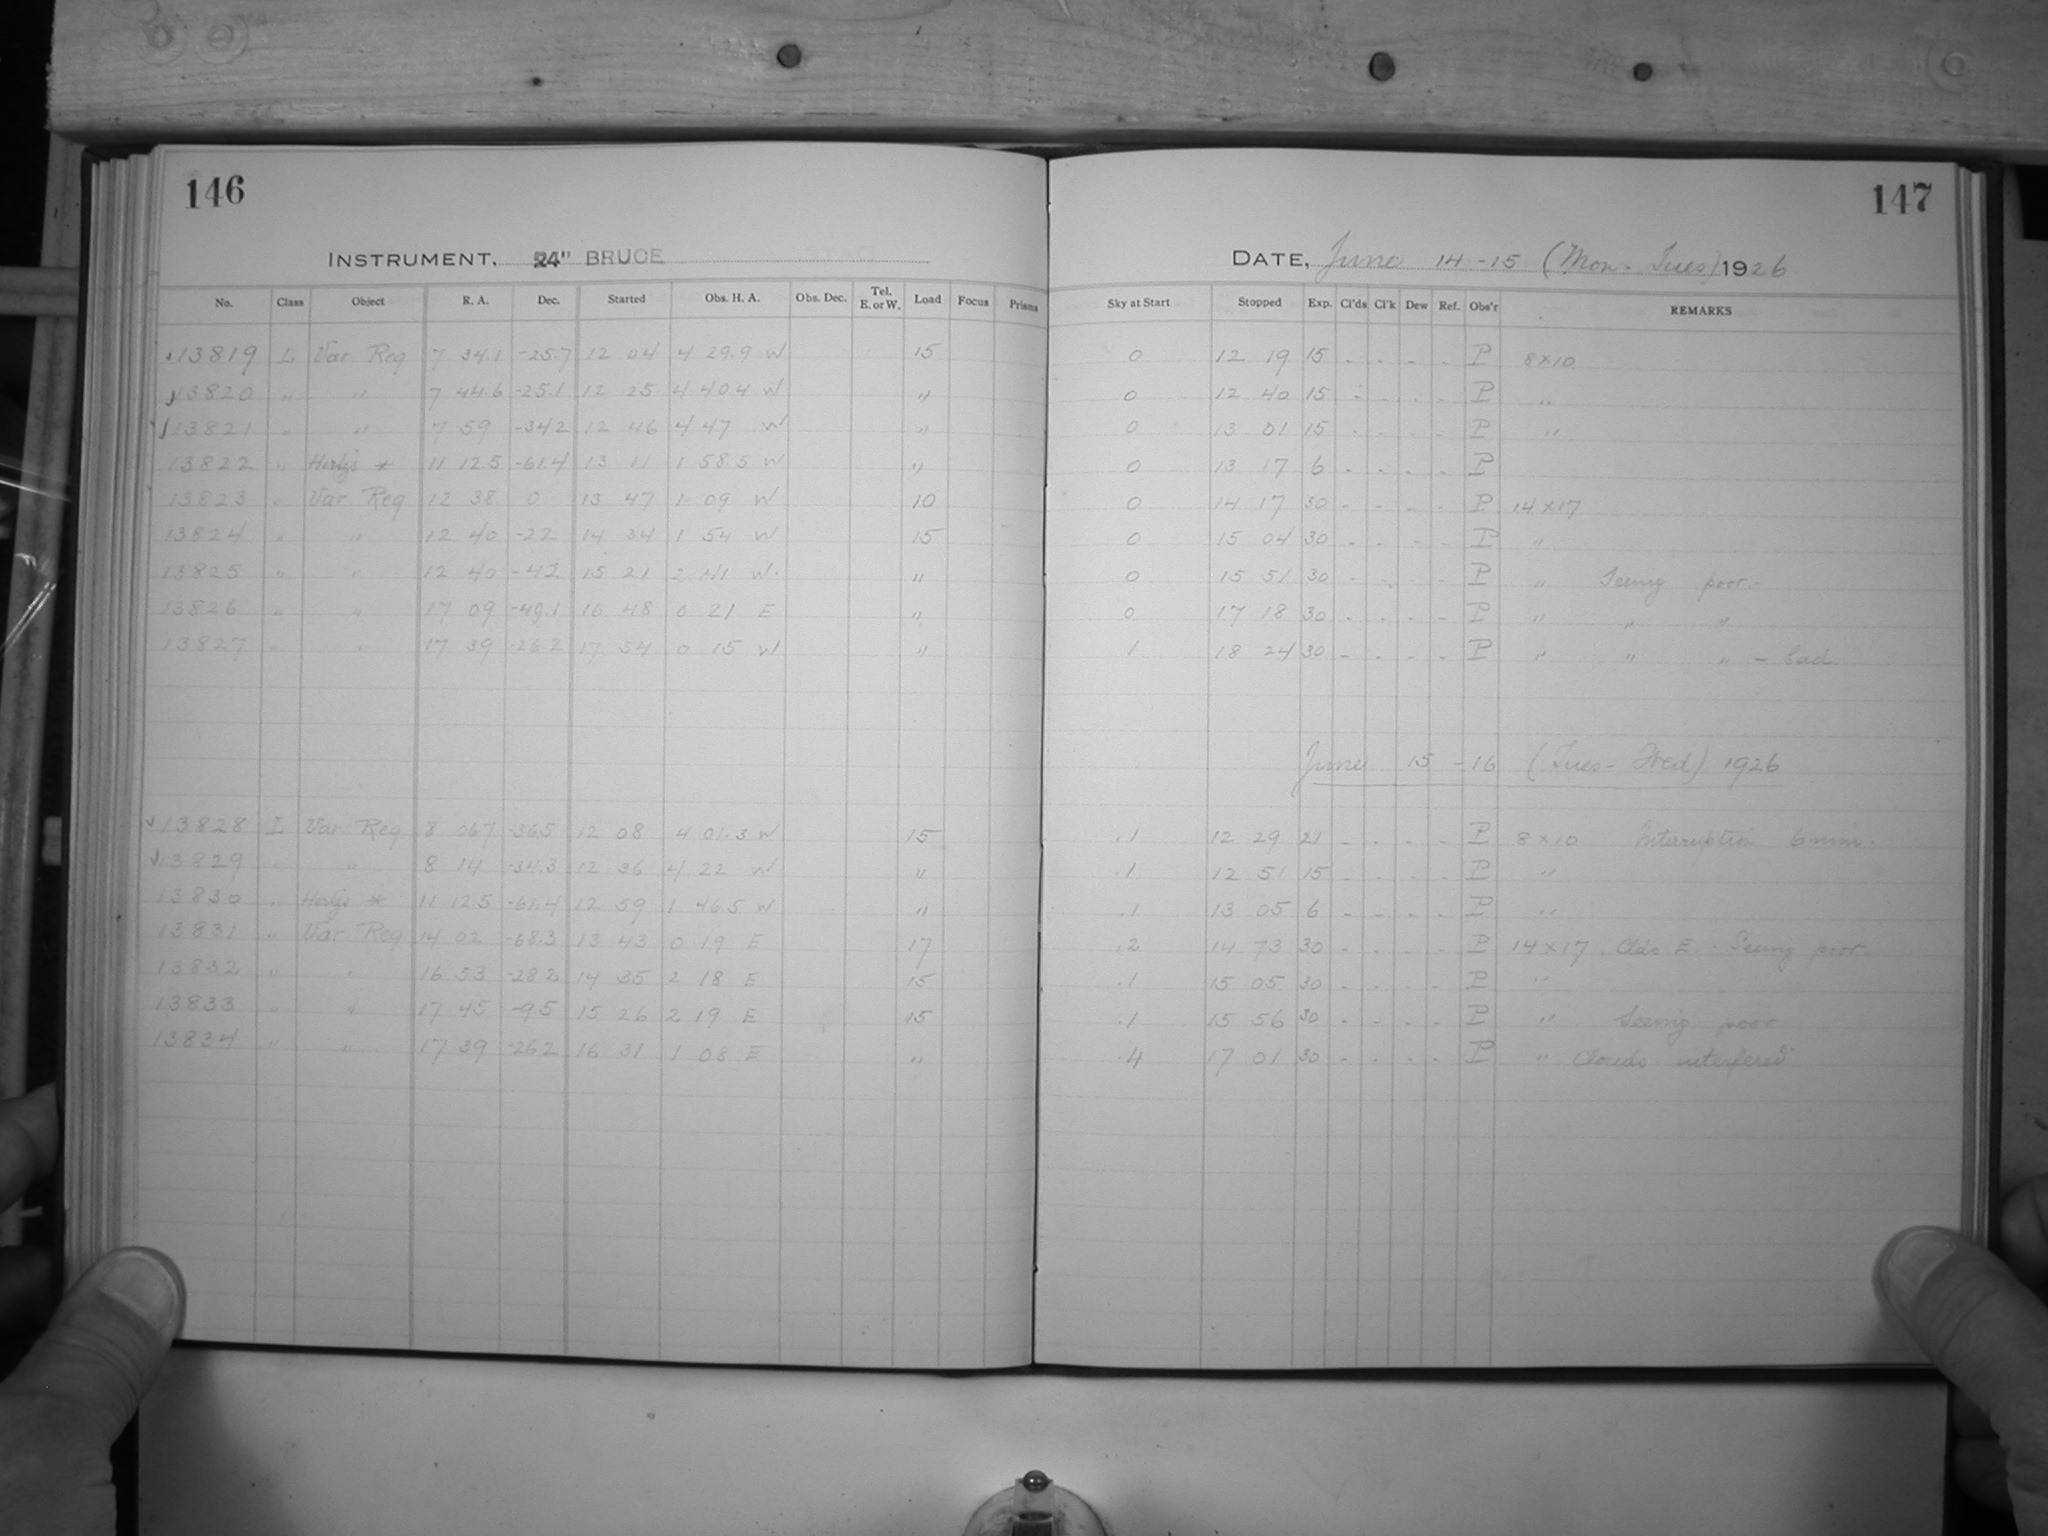 146
INSTRUMENT, 24" BRUCE
No. Class Object R. A. Dec. Started Obs. H. A. Obs. Dec. Tel. E. or W. Load Focus Prisms
13819 L Var Reg 7 34.1 -25.7 12 04 4 29.9 W 15
13820 " " 7 44.6 -25.1 12 25 4 40.4 W "
13821 " " 7 59 -34.2 12 46 4 47 W "
13822 " 11 12.5 -61.4 13 11 1 58.5 W "
13823 " Var Reg 12 38 0 13 47 1 09 W 10
13824 " " 12 40 -22 14 34 1 54 W 15
13825 " " 12 40 -42 15 21 2 41 W. "
13826 " " 17 09 -49.1 16 48 0 21 E "
13827 " " 17 39 -26.2 17 54 0 15 W "
13828 L Var Reg 8 06.7 -36.5 12 08 4 01.3 W 15
13829 " " 8 14 -34.3 12 36 4 22 W "
13830 " 11 12.5 -61.4 12 59 1 46.5 W "
13831 " Var Reg 14 02 -68.3 13 43 0 19 E 17
13832 " " 16 53 -28.2 14 35 2 18 E 15
13833 " " 17 45 -9.5 15 26 2 19 E 15
13834 " " 17 39 -26.2 16 31 1 08 E "
147
DATE, June 14-15 (Mon-Tues) 1926
Sky at Start Stopped Exp. Cl'ds Cl'k Dew Ref. Obs'r REMARKS
0 12 19 15 - - - - P 8x10
0 12 40 15 - - - - P "
0 13 01 15 - - - - P "
0 13 17 6 - - - - P
0 14 17 30 - - - - P 14x17
0 15 04 30 - - - - P "
0 15 51 30 - - - - P " Seeing poor -
0 17 18 30 - - - - P " " "
1 18 24 30 - - - - P " " " - bad
June 15-16 (Tues-Wed) 1926
.1 12 29 21 - - - - P 8x10 Interruption 6 min.
.1 12 51 15 - - - - P "
.1 13 05 6 - - - - P "
.2 14 73 30 - - - - P 14x17 Clds E. Seeing poor.
.1 15 05 30 - - - - P "
.1 15 56 30 - - - - P " Seeing poor
.4 17 01 30 - - - - P " Clouds interfered